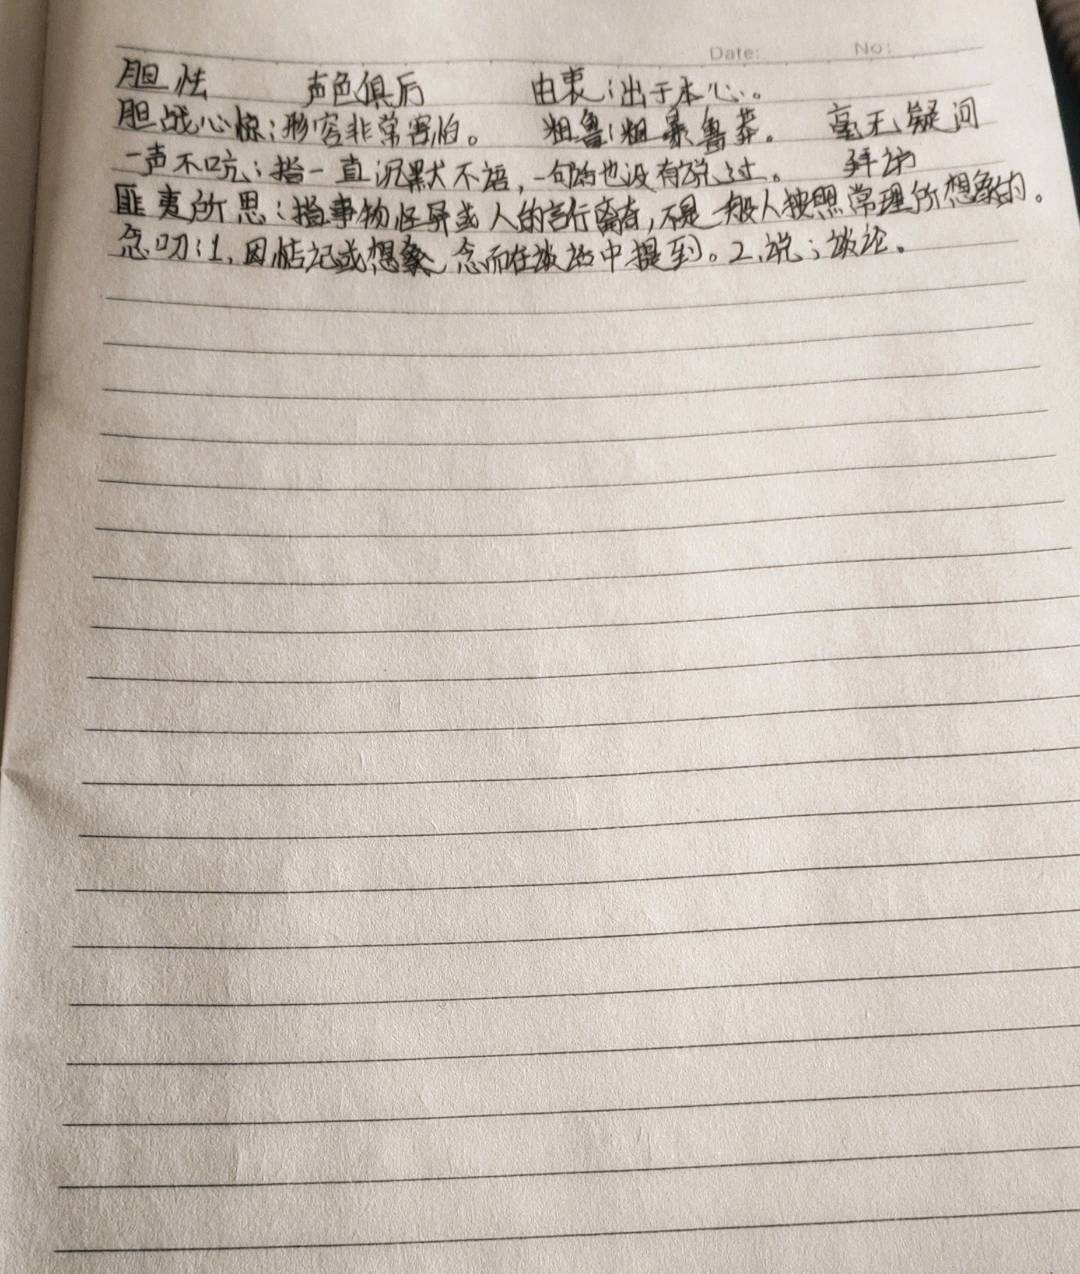 Date: No:
胆怯 声色俱厉 由衷:出于本心。
胆战心惊:形容非常害怕。 粗鲁:粗暴鲁莽。 毫无疑问
一声不吭:指一直沉默不语,一句话也没有说过。 拜访
匪夷所思:指事物怪异或人的言行离奇,不是一般人按照常理所想象的。
念叨:1.因惦记或想象念而在谈话中提到。2.说;谈论。